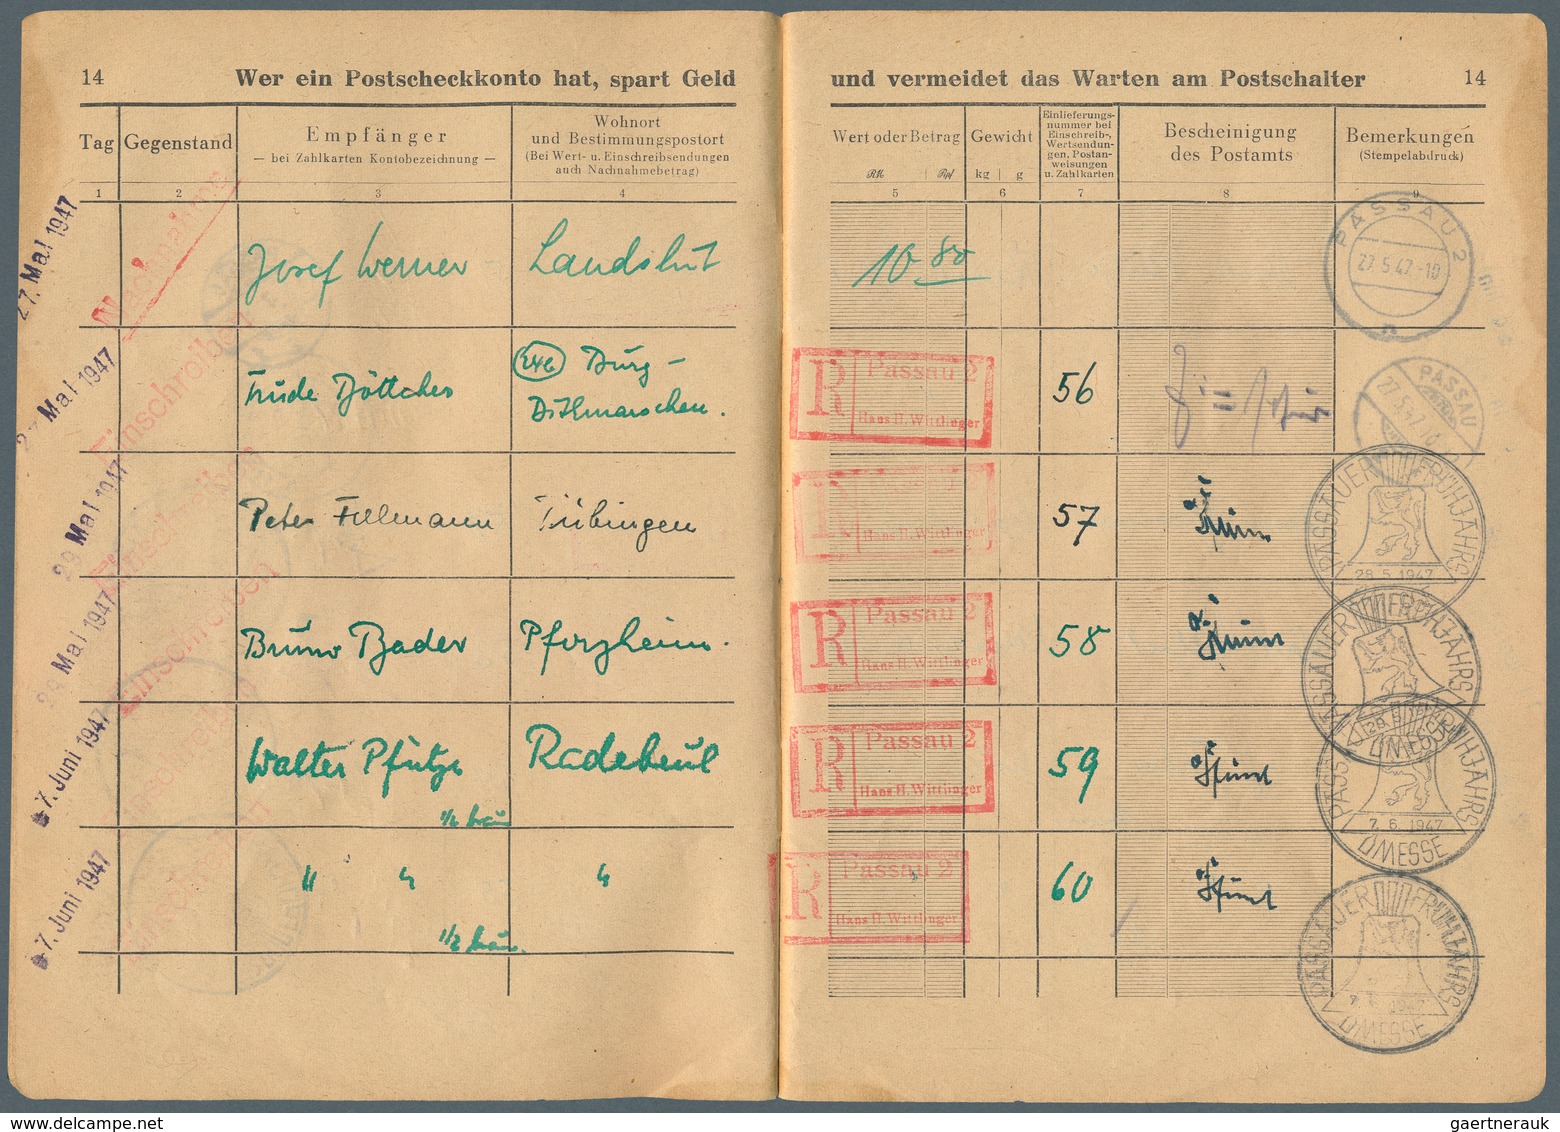 14 Wer ein Postscheckkonto hat, spart Geld und vermeidet das Warten am Postschalter 14
Tag Gegenstand
Empfänger
— bei Zahlkarten Kontobezeichnung —
Wohnort
und Bestimmungspostort
(Bei Wert- u. Einschreibsendungen
auch Nachnahmebetrag)
Wert oder Betrag
RM Rpf
Gewicht
kg g
Einlieferungs-
nummer bei
Einschreib-,
Wertsendun-
gen, Postan-
weisungen
u. Zahlkarten
Bescheinigung
des Postamts
Bemerkungen
(Stempelabdruck)
1 2 3 4 5 6 7 8 9
27. Mai 1947
Nachnahme
Josef Werner Landshut
10 80
PASSAU 2
27.5.47.-10
n
Mai 1947
Einschreiben
Trude Böttcher
24b Burg –
Dithmarschen.
R Passau 2
Hans H. Wittlinger
56
PASSAU
29 Mai 1947
Einschreiben
Peter Fellmann Tübingen
R
Hans H. Wittlinger
57
PASSAUER FRÜHJAHRS
29.5.1947
29 Mai 1947
Einschreiben
Bruno Bader Pforzheim.
R Passau 2
Hans H. Wittlinger
58
PASSAUER FRÜHJAHRS
DMESSE
-7. Juni 1947
Einschreiben
Walter Pfütze Radebeul
R Passau 2
Hans H. Wittlinger
59
PASSAUER FRÜHJAHRS
7. 6. 1947
DMESSE
-7. Juni 1947
Einschreiben
" " "
R Passau 2
Hans H. Wittlinger
60
PASSAUER FRÜHJAHRS
7. 6. 1947
DMESSE
gaertnerauk